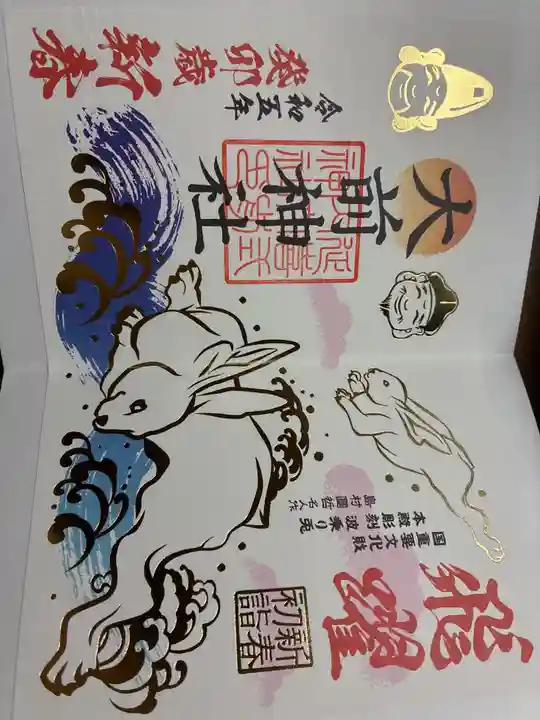 飛躍
新春
初詣
国重要文化財
本殿彫刻波乗り兎
島村圓哲名人作
大前神社
令和五年
癸卯歳
新春